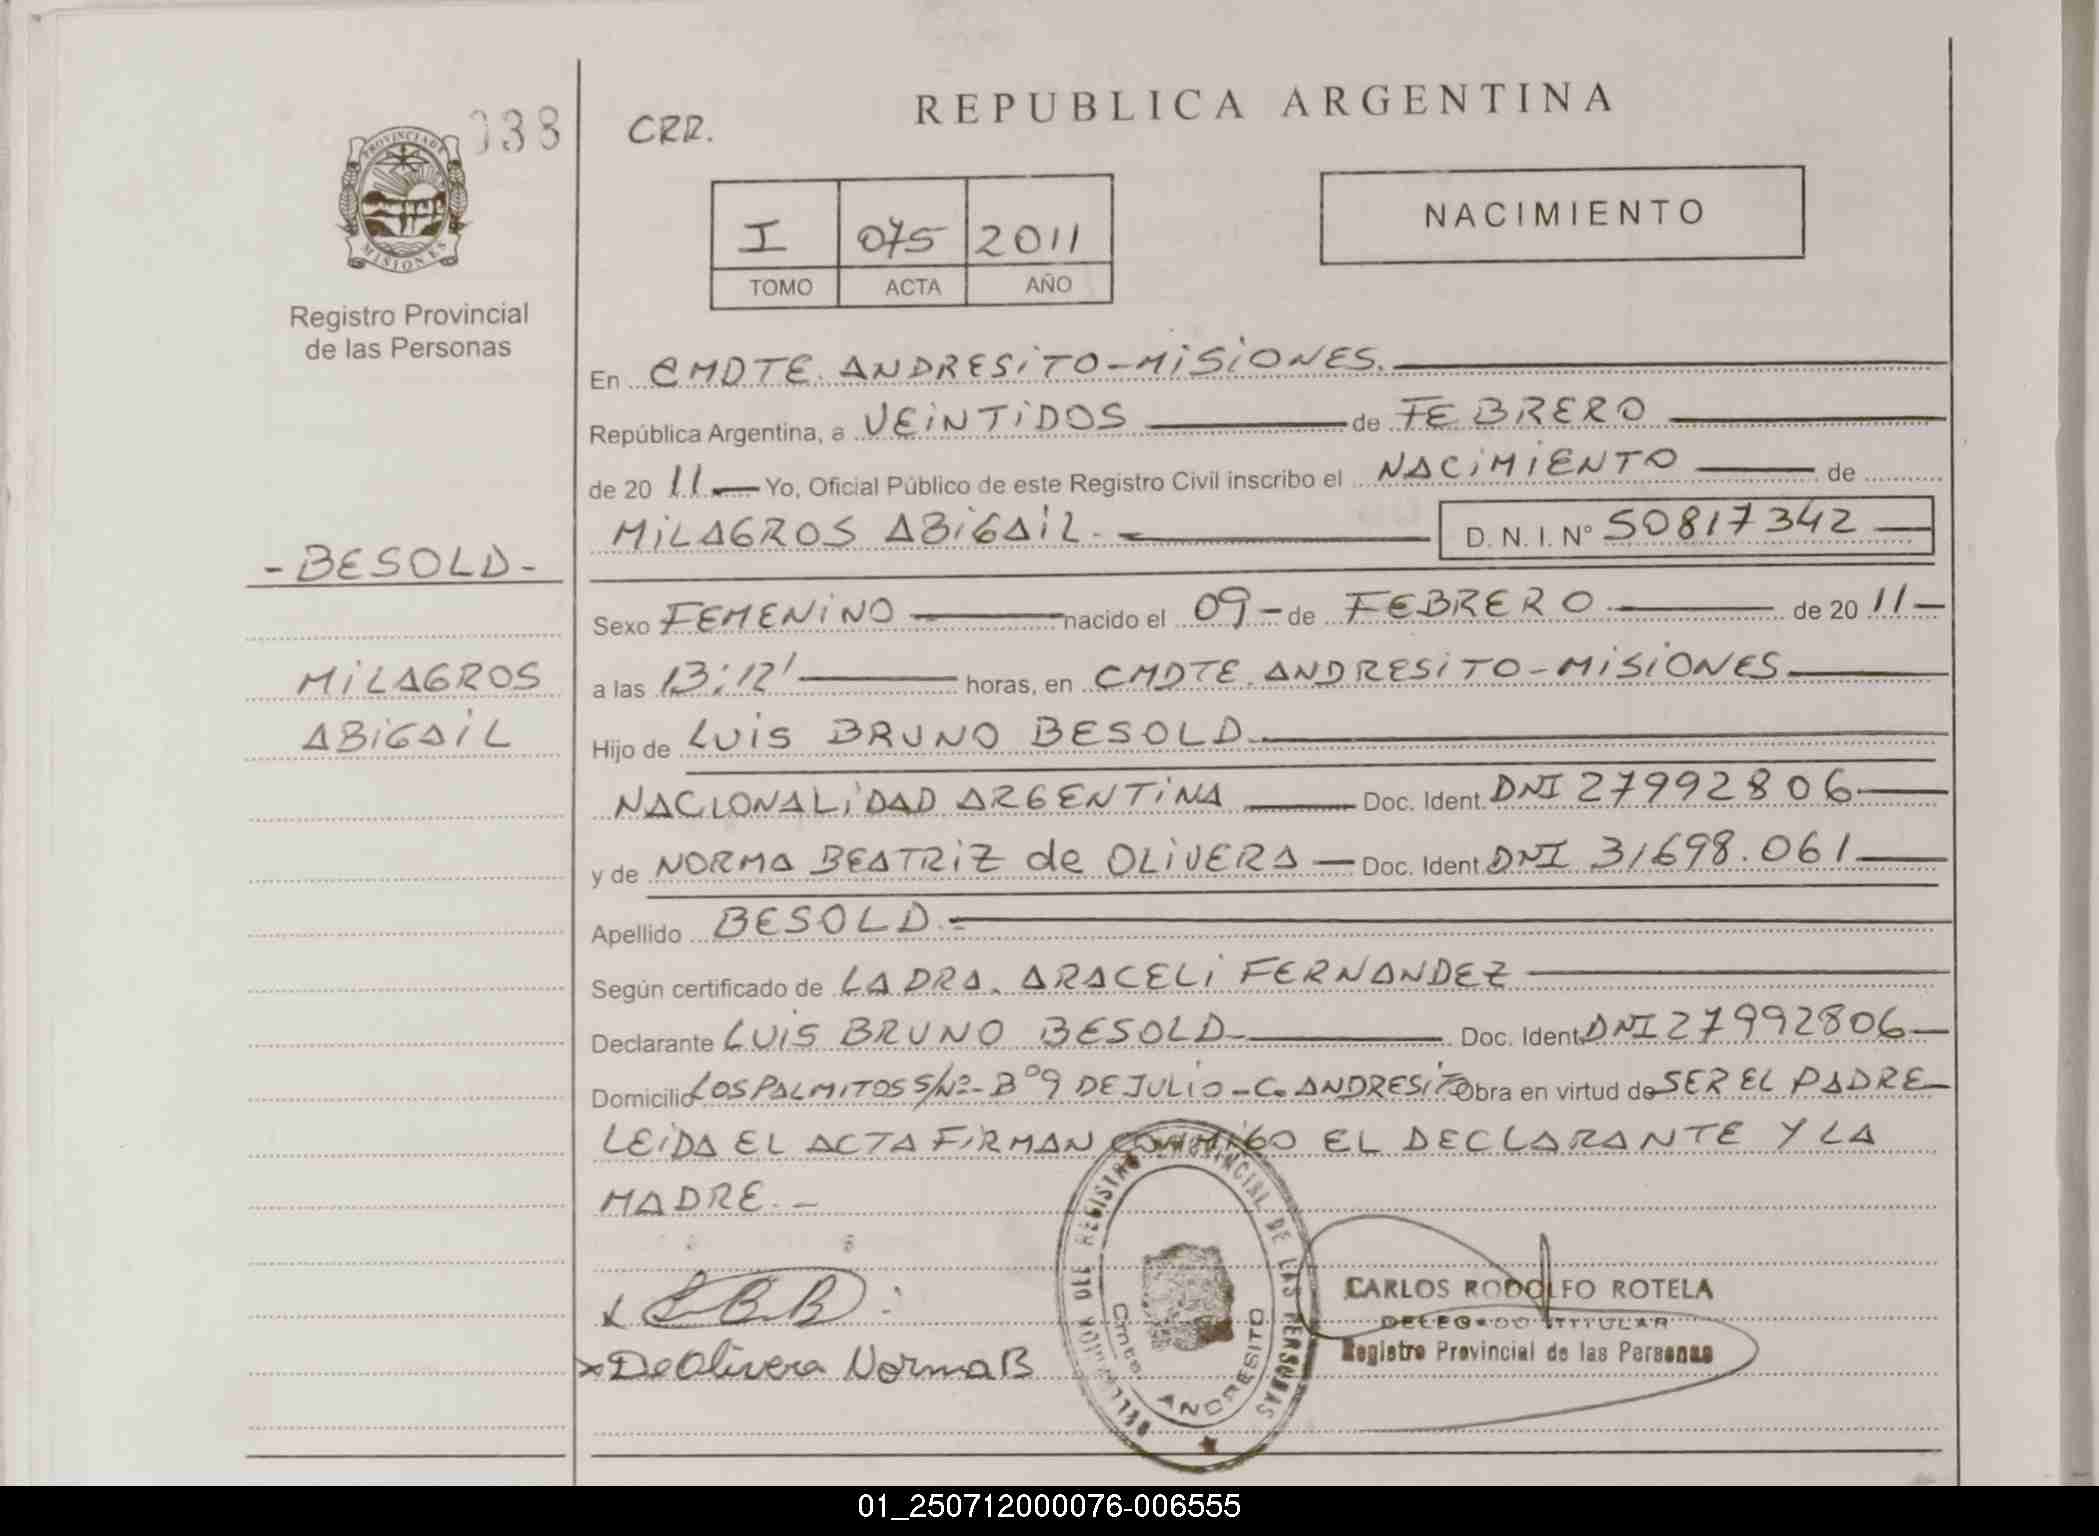 038
PROVINCIA DE
MISIONES
Registro Provincial
de las Personas
- BESOLD -
MILAGROS
ABIGAIL
CRR.
REPUBLICA ARGENTINA
I 075 2011
TOMO ACTA AÑO
NACIMIENTO
En CMDTE. ANDRESITO - MISIONES.
República Argentina, a VEINTIDOS de FEBRERO
de 20 11 Yo, Oficial Público de este Registro Civil inscribo el NACIMIENTO de
MILAGROS ABIGAIL. D. N. I. Nº 50817342
Sexo FEMENINO nacido el 09 - de FEBRERO de 20 11
a las 13:12' horas, en CMDTE. ANDRESITO - MISIONES
Hijo de LUIS BRUNO BESOLD
NACIONALIDAD ARGENTINA Doc. Ident. DNI 27992806
y de NORMA BEATRIZ de OLIVERA Doc. Ident. DNI 31698.061
Apellido BESOLD.
Según certificado de LA DRA. ARACELI FERNANDEZ
Declarante LUIS BRUNO BESOLD Doc. Ident. DNI 27992806
Domicilio LOS PALMITOS S/Nº - Bº 9 DE JULIO - C. ANDRESITO Obra en virtud de SER EL PADRE
LEIDA EL ACTA FIRMAN CONMIGO EL DECLARANTE Y LA
MADRE. -
x L B B
x De Olivera Norma B
DELEGACION DEL REGISTRO PROVINCIAL DE LAS PERSONAS
Cmte. ANDRESITO
CARLOS RODOLFO ROTELA
DELEGADO TITULAR
Registro Provincial de las Personas
01_250712000076-006555